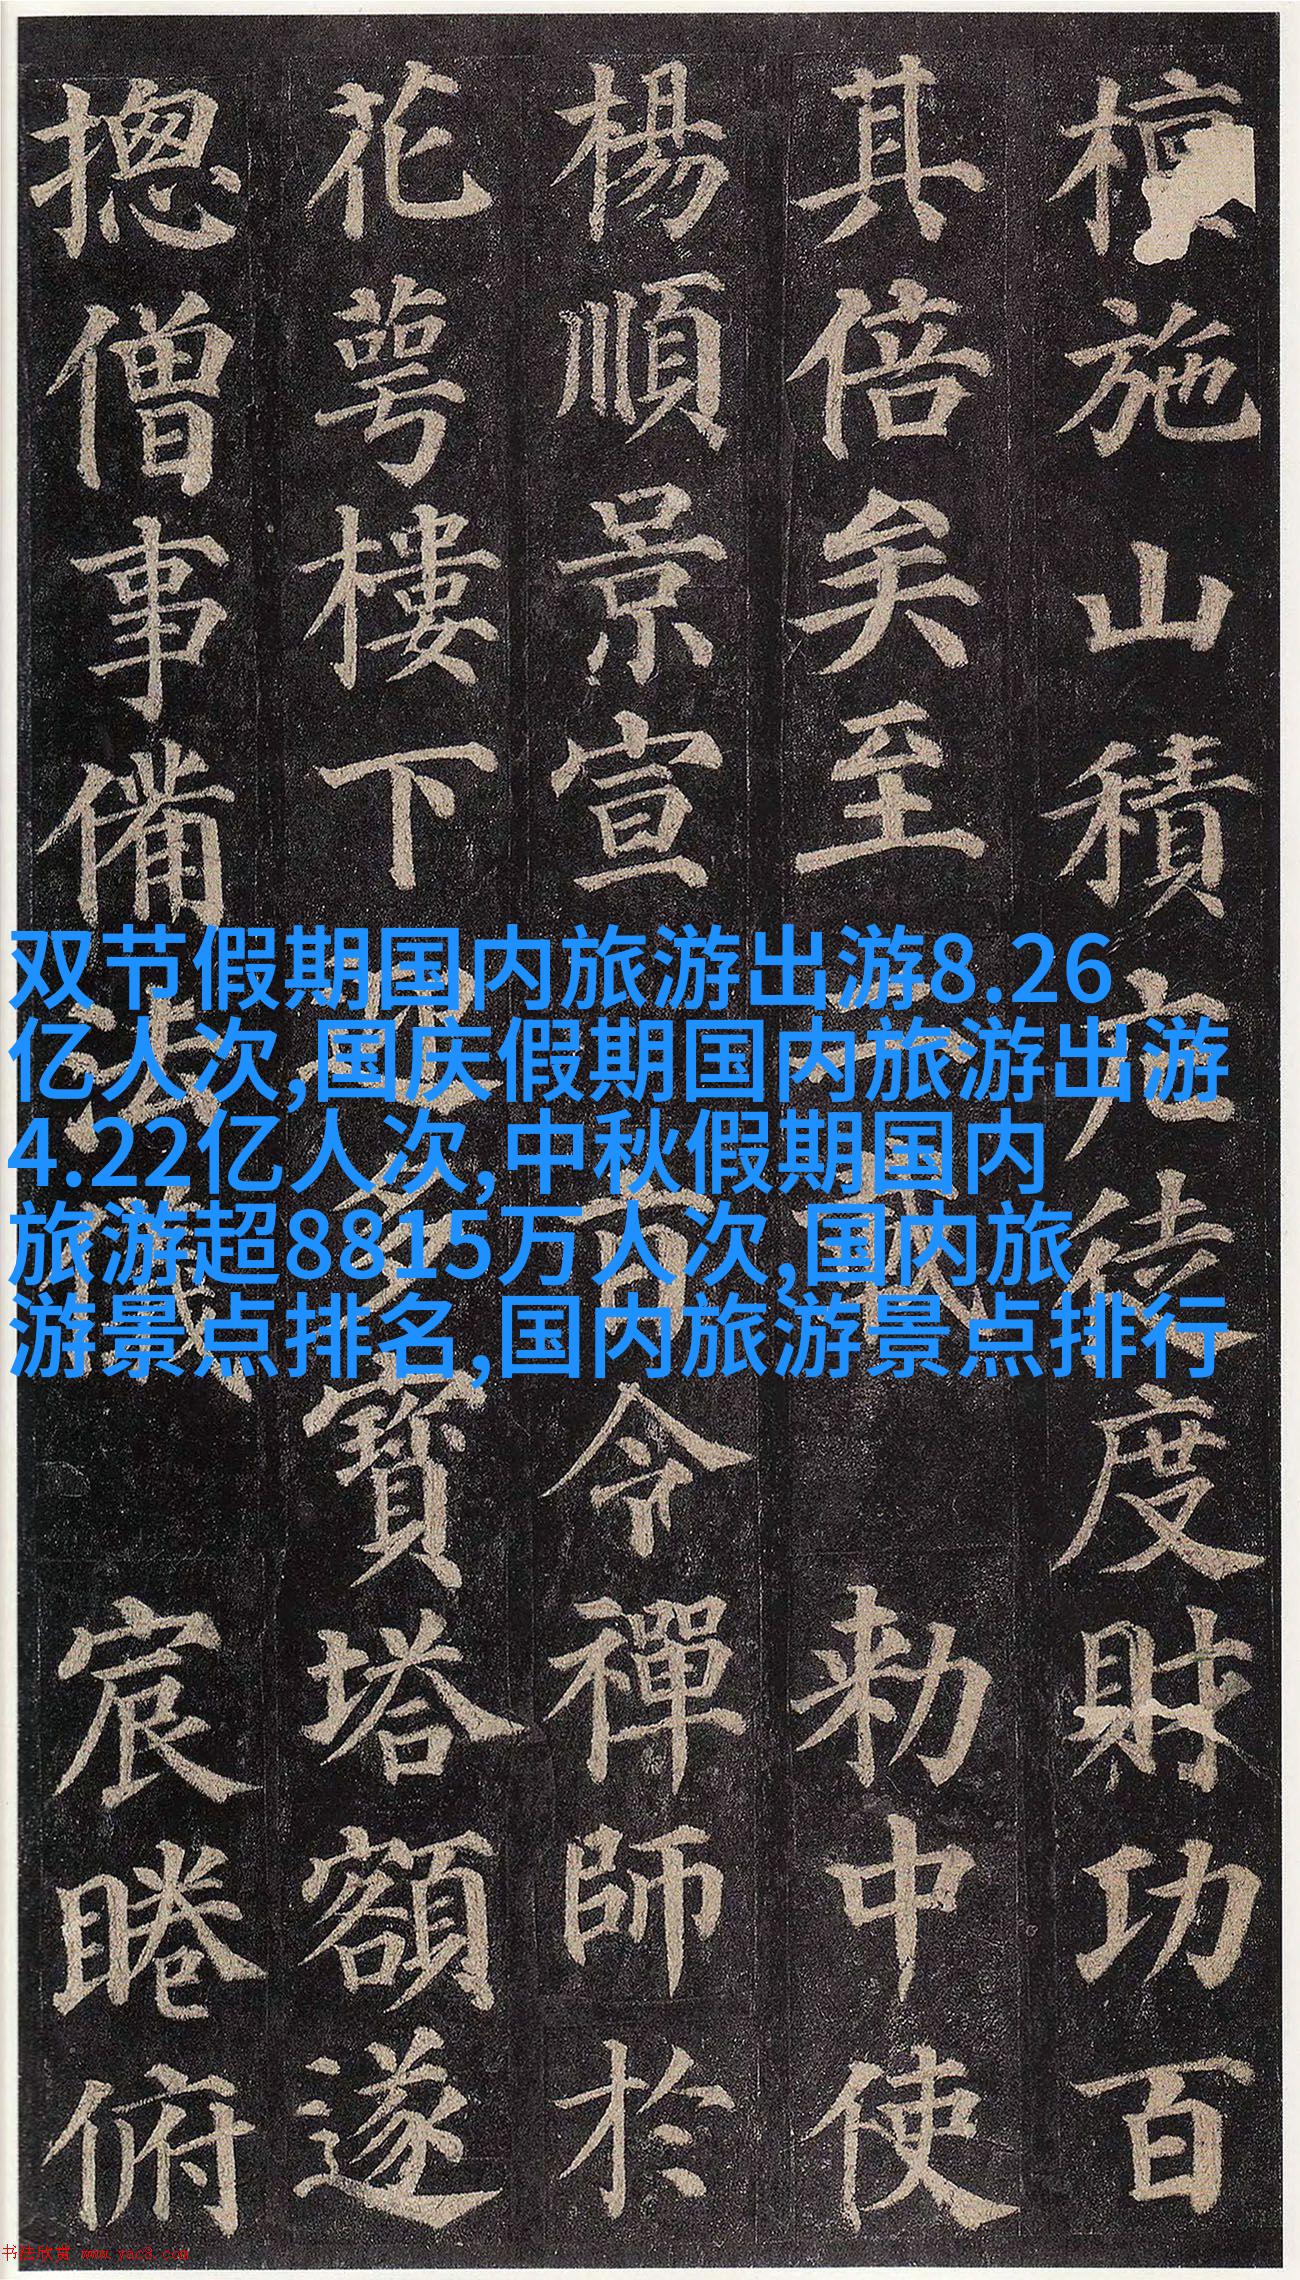 施山積庀徒度財功百
其倍矣至二載勅中使
楊順景宣旨令禪師於
花萼樓下迎多寶塔額遂
摠僧事備法儀宸睠俯
双节假期国内旅游出游8.26
亿人次,国庆假期国内旅游出游
4.22亿人次,中秋假期国内
旅游超8815万人次,国内旅
游景点排名,国内旅游景点排行
书法欣赏 www.yac3.com